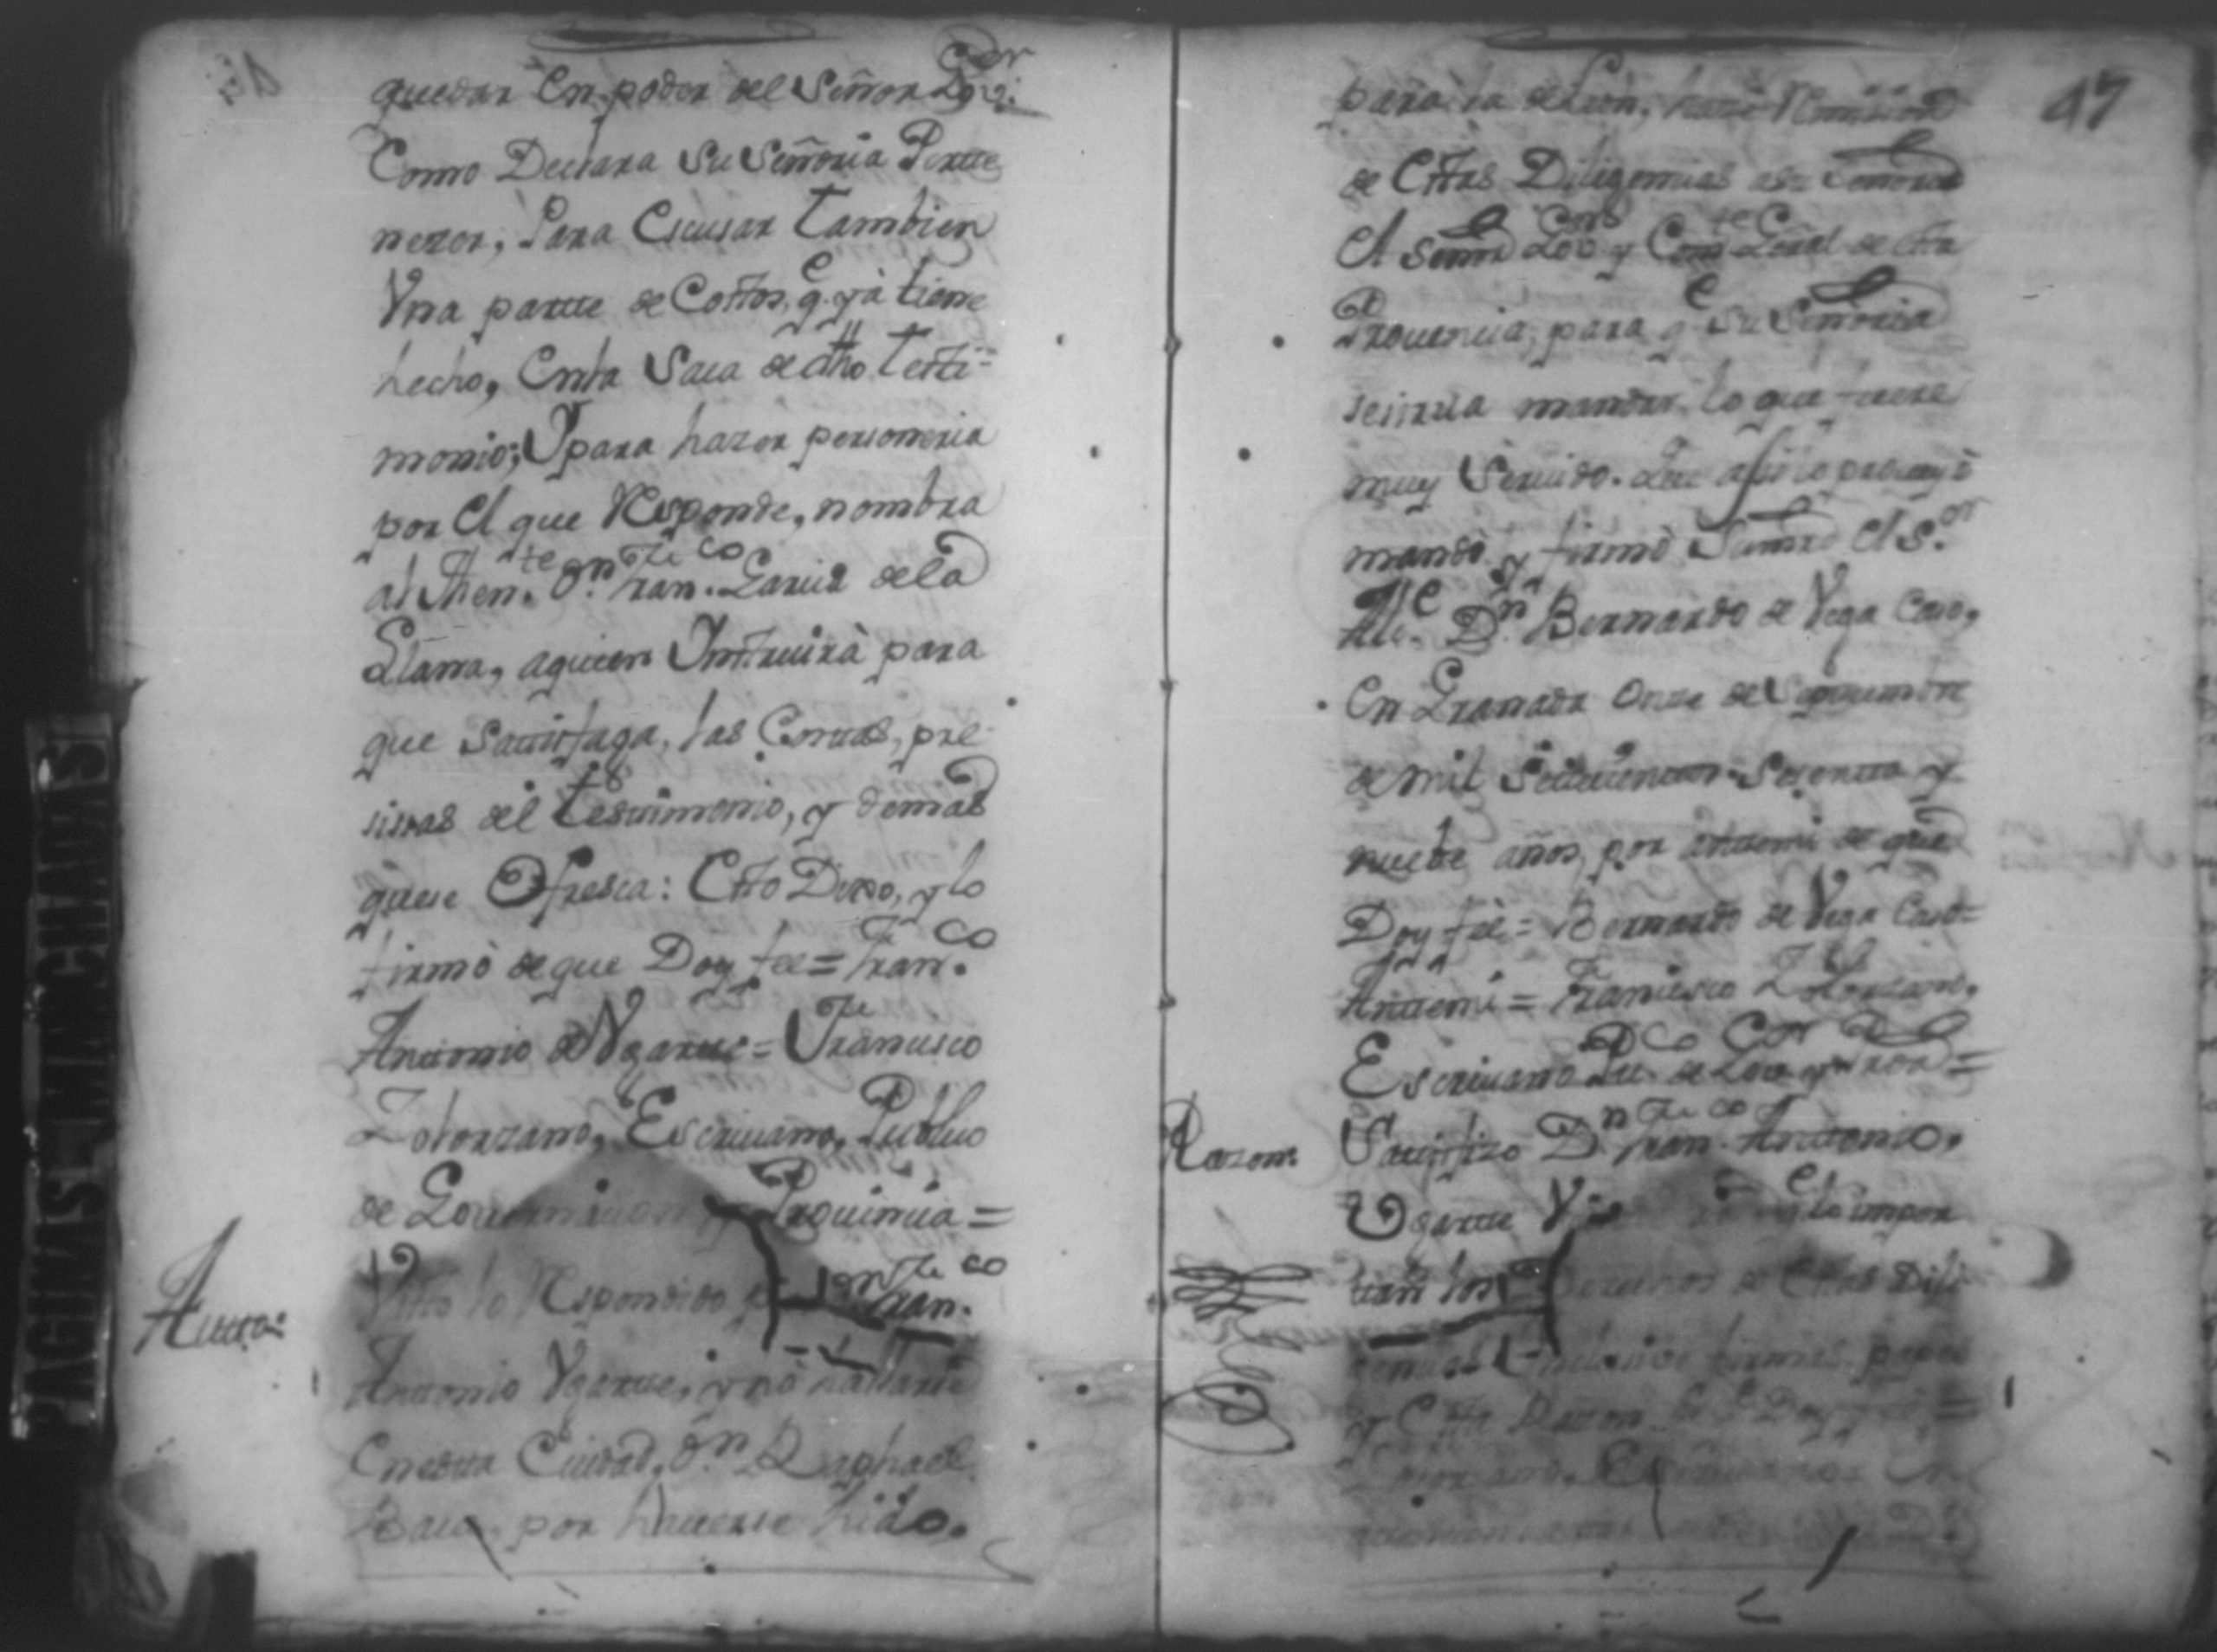 quedar En poder del Señor Gov.or
Como Declara Su Señoria Pertte
nezer, Para Escusar tambien
Vna partte de Costtos, q.e yà tiene
hecho, Enla Saca de dho testti-
monio; Y para hazer personeria
por El que Responde, nombra
al Then.te D.n Fran.co Garcia dela
Llana, aquien Ynsttruirà para
que Sattisfaga, las Costtas, pre-
sisas del testtimonio, y demas
quese Ofresca: Estto Dixo, y lo
firmò de que Doy fee = Fran.co
Anttonio de Vgartte = Francisco
Zolorzano, Escriuano, Publico
de Gouernacion y Prouincia =
Autto:
Vistto lo Respondido por D.n Fran.co
Anttonio Vgartte, y no hallarse
Enestta Ciudad, D.n Raphael
por hauerse hido,
47
para la de Leon, hazer Remision
de Esttas Diligencias a su Señoria
El Señor Gov.or y Com.te Genal de estta
Prouencia, para q.e Su Señoria
se sirua mandar lo que fuere
muy Seruido. Que assi lo proueyò
mandò y firmò Su md El S.or
Alc.e D.n Bernardo de Vega Caso,
En Granada Onze de Septtiembre
de mil Settecienttos Sesentta y
nuebe años, por anttemi de que
Doy fee = Bernardo de Vega Caso =
Anttemi = Francisco Zolorzano,
Escriuano Pu.co de Gov.or y Prov.a =
Razon:
Sattisfizo D.n Fran.co Anttonio,
Vgartte impor
tan los Derechos de Esttas Dili
y Razon Doy fee =
Escriuano